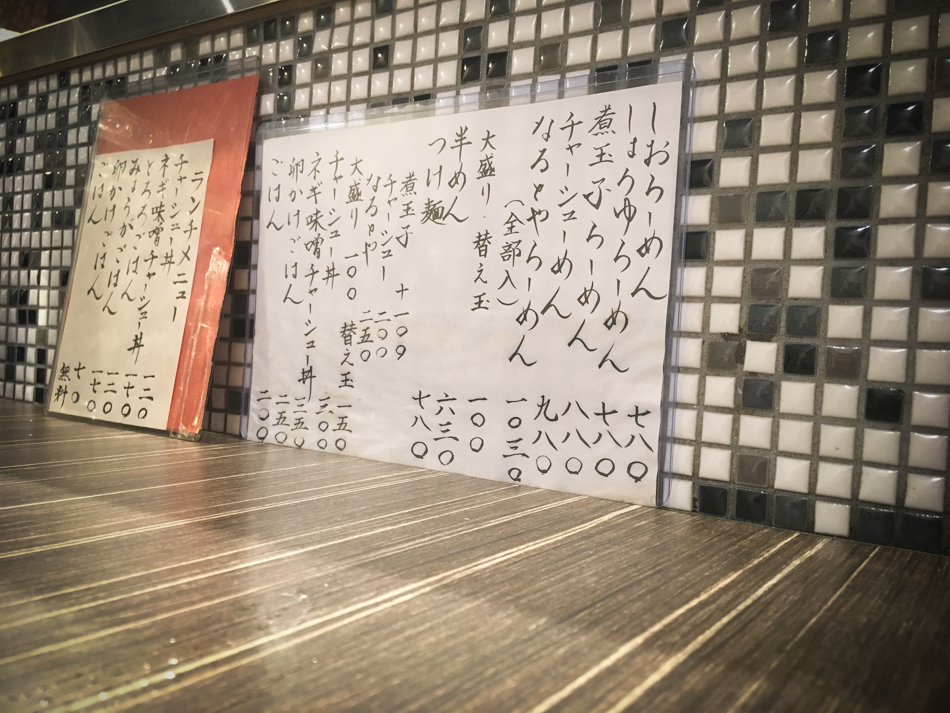 しおらーめん 七八〇
しょうゆらーめん 七八〇
煮玉子らーめん 八八〇
チャーシューめん 九八〇
なるとやらーめん 一〇三〇
（全部入）
大盛り・替え玉 一〇〇
半めん 六三〇
つけ麺 七八〇
煮玉子 +一〇〇
チャーシュー 二〇〇
なるとや 二五〇
大盛り 一〇〇 替え玉 一五〇
チャーシュー丼 三〇〇
ネギ味噌チャーシュー丼 三五〇
卵かけごはん 二五〇
ごはん 二〇〇
ランチメニュー
チャーシュー丼 一二〇
ネギ味噌チャーシュー丼 一七〇
とろろごはん 一二〇
みょうがごはん 一七〇
卵かけごはん 七〇
ごはん 無料